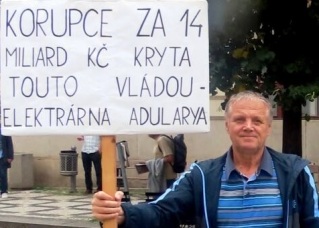 KORUPCE ZA 14
MILIARD KČ KRYTA
TOUTO VLÁDOU-
ELEKTRÁRNA ADULARYA